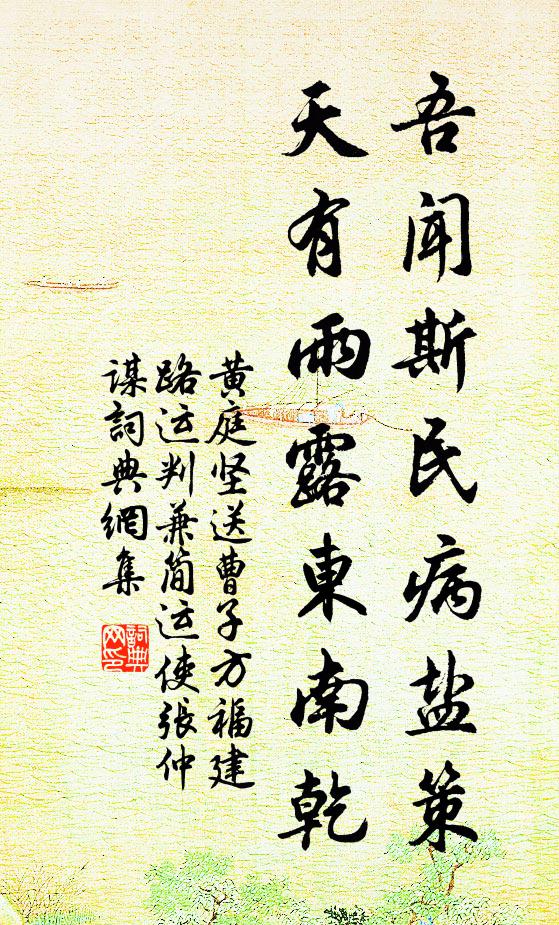 吾闻斯民病盐策
天有雨露東南乾
黄庭坚送曹子方福建
路运判兼简运使張仲
谋詞典網集
詞典
网印